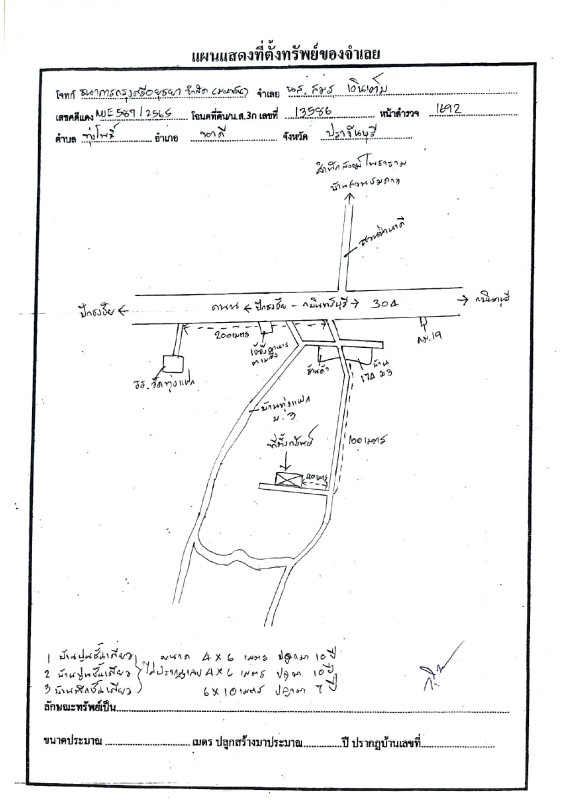 แผนแสดงที่ตั้งทรัพย์ของจำเลย
โจทก์ ธนาคารกรุงศรีอยุธยา จำกัด (มหาชน) จำเลย
เลขคดีแดง ผบE589/2565 โฉนดที่ดิน/น.ส.3ก เลขที่ 13586 หน้าสำรวจ 1692
ตำบล ทุ่งโพธิ์ อำเภอ นาดี จังหวัด ปราจีนบุรี
สวนป่านาดี
ปักธงชัย ถนน ปักธงชัย - กบินทร์บุรี 304 กบินทร์บุรี
200 เมตร
กม.19
รร. วัดทุ่งแฝก
ร้านค้า
บ้าน
174 ม3
บ้านทุ่งแฝก
ม.3
100 เมตร
ที่ตั้งทรัพย์
20 เมตร
1 บ้านปูนชั้นเดียว ขนาด 4 x 6 เมตร ปลูกมา 10 ปี
2 บ้านปูนชั้นเดียว ไม่ปรากฏเลข 4 x 6 เมตร ปลูกมา 10 ปี
3 บ้านตึกชั้นเดียว 6 x 10 เมตร ปลูกมา 7 ปี
ลักษณะทรัพย์เป็น
ขนาดประมาณ เมตร ปลูกสร้างมาประมาณ ปี ปรากฏบ้านเลขที่